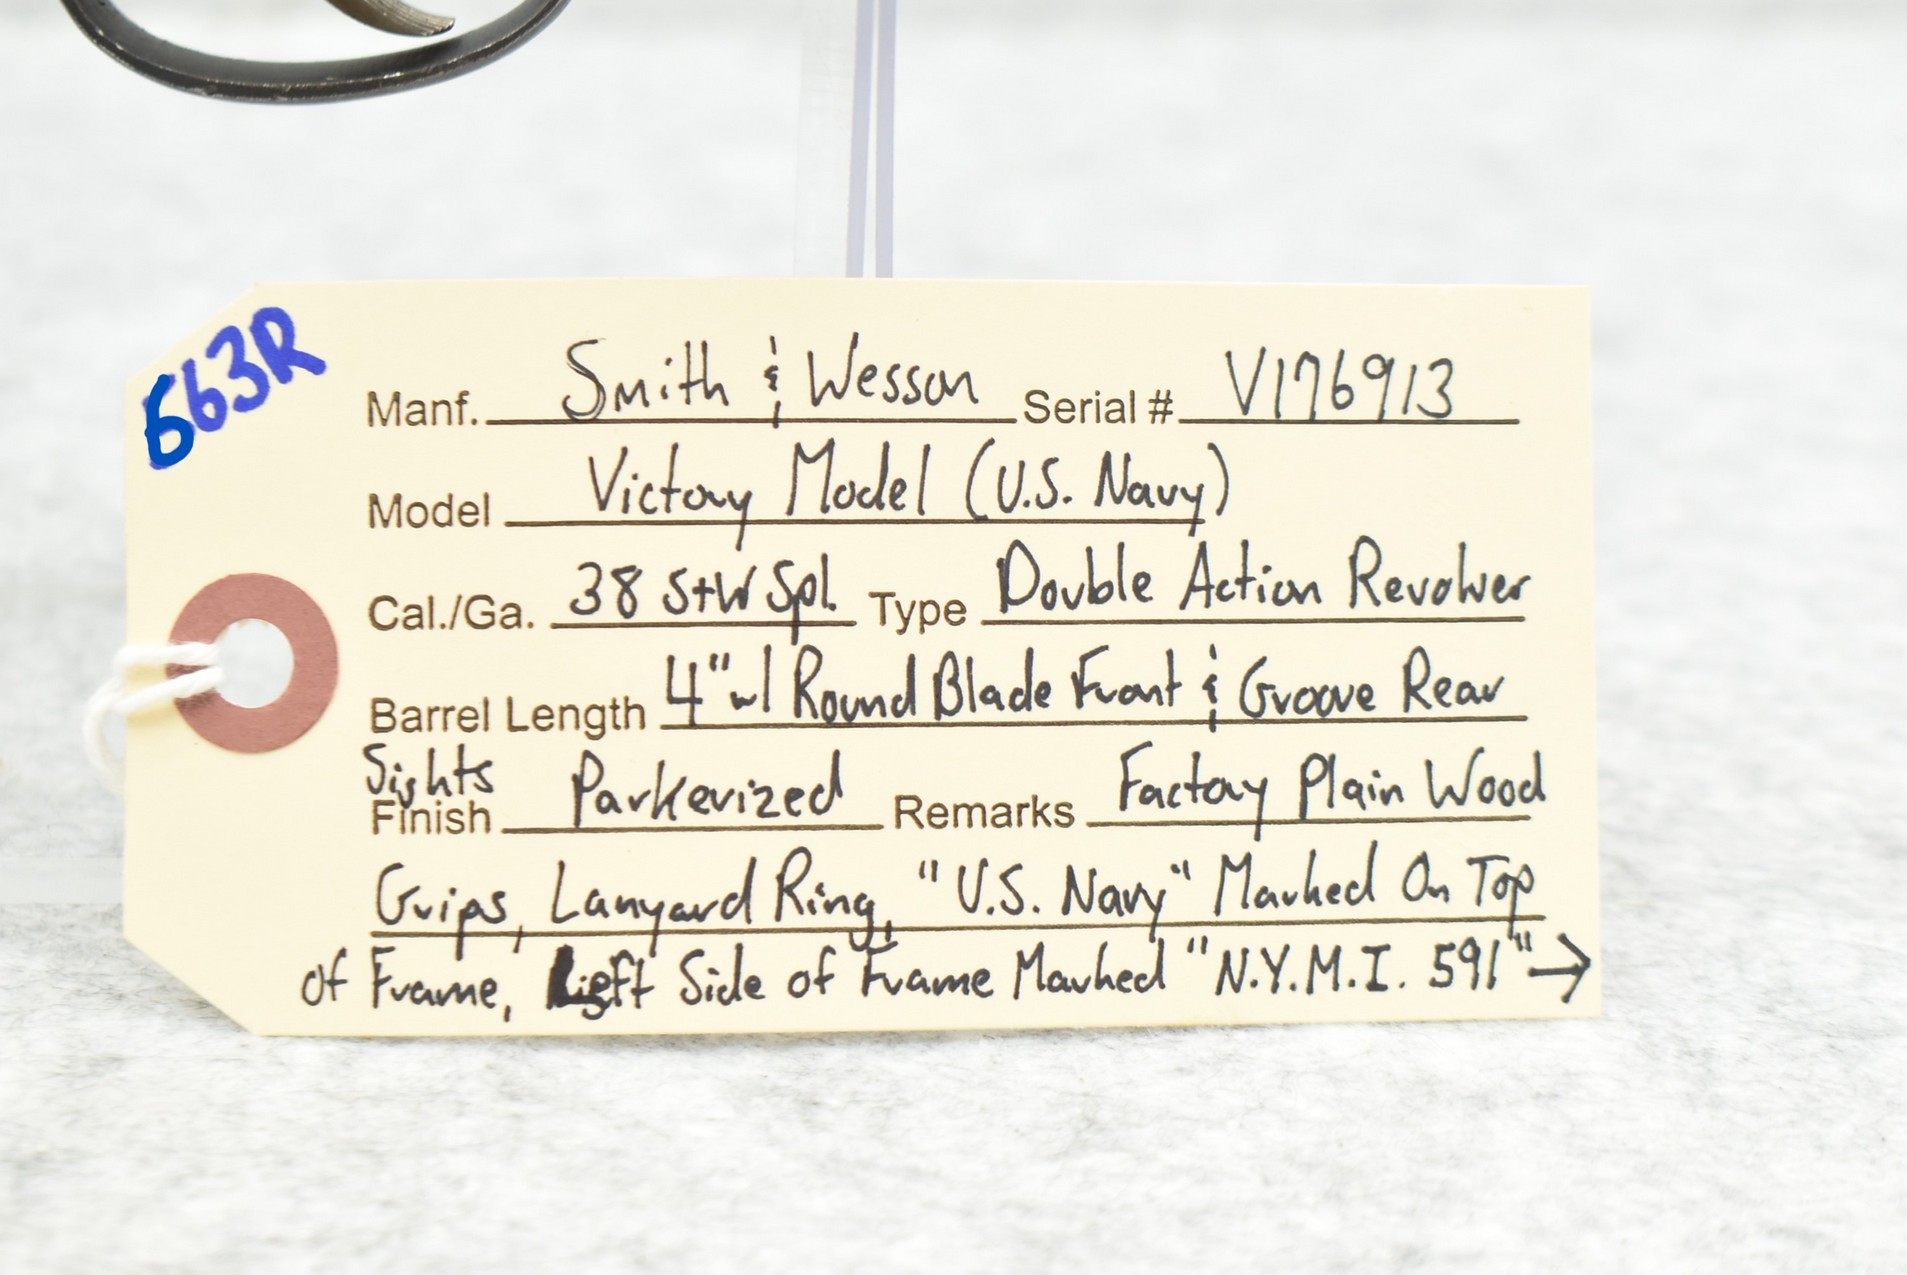 663R
Manf. Smith & Wesson Serial # V176913
Model Victory Model (U.S. Navy)
Cal./Ga. 38 S+W Spl. Type Double Action Revolver
Barrel Length 4" w/ Round Blade Front & Groove Rear
Sights
Finish Parkerized Remarks Factory Plain Wood
Grips, Lanyard Ring, "U.S. Navy" Marked On Top
of Frame, Left Side of Frame Marked "N.Y.M.I. 591" →